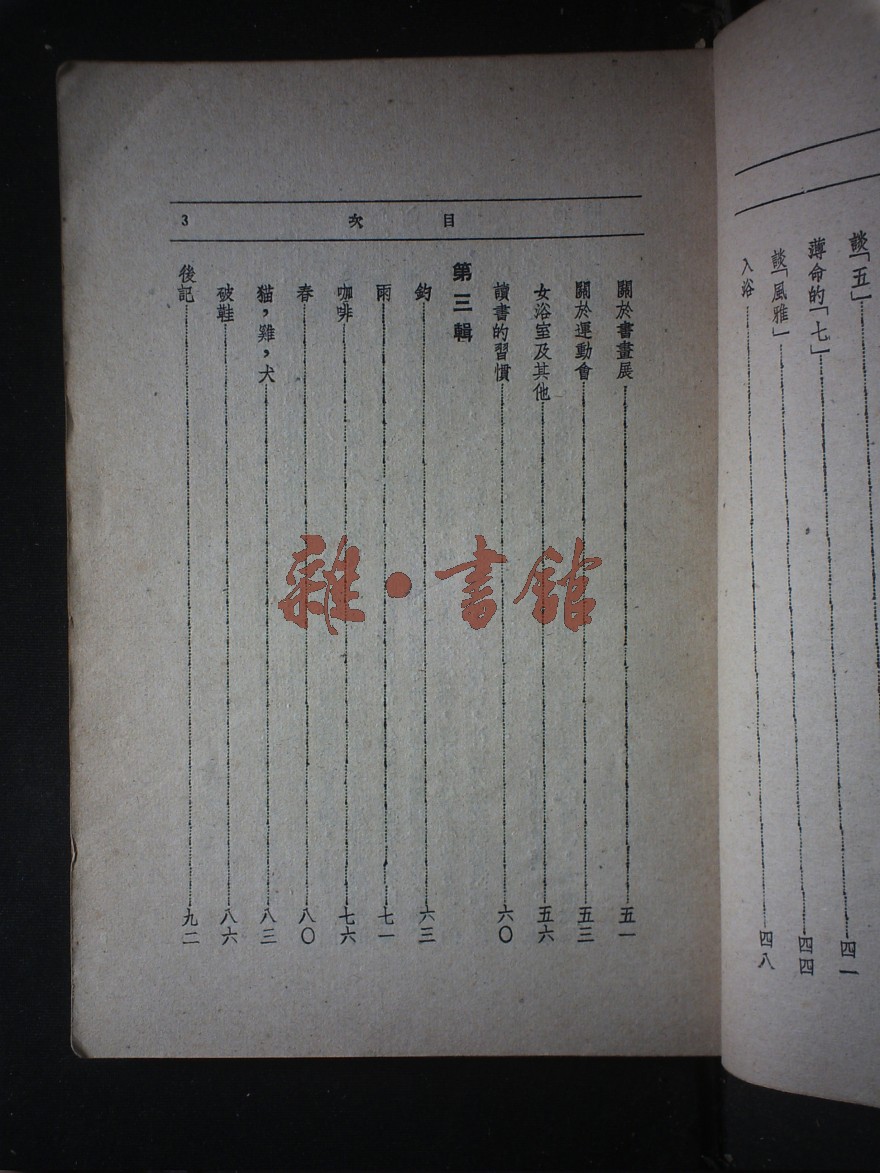 談「五」……四一
薄命的「七」……四四
談「風雅」……四八
入浴……四八
目次
3
關於書畫展……五一
關於運動會……五三
女浴室及其他……五六
讀書的習慣……六〇
第三輯
釣……六三
雨……七一
咖啡……七六
春……八〇
貓，雞，犬……八三
破鞋……八六
後記……九二
雜·書館